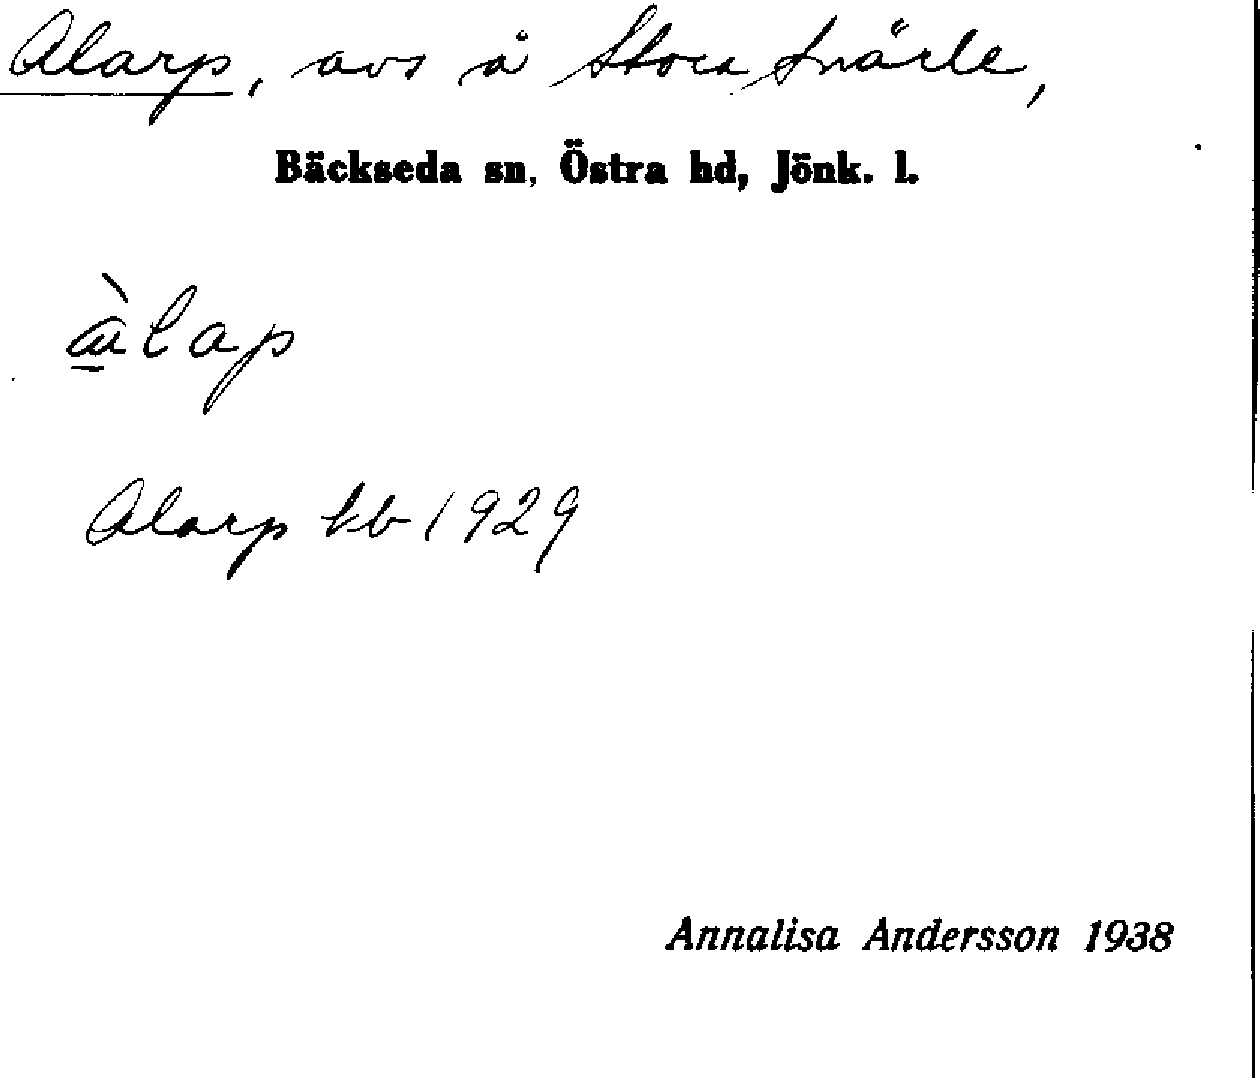 Alarp, avs å Stora Snärle,
Bäckseda sn, Östra hd, Jönk. l.
àlap
Alarp kb 1929
Annalisa Andersson 1938